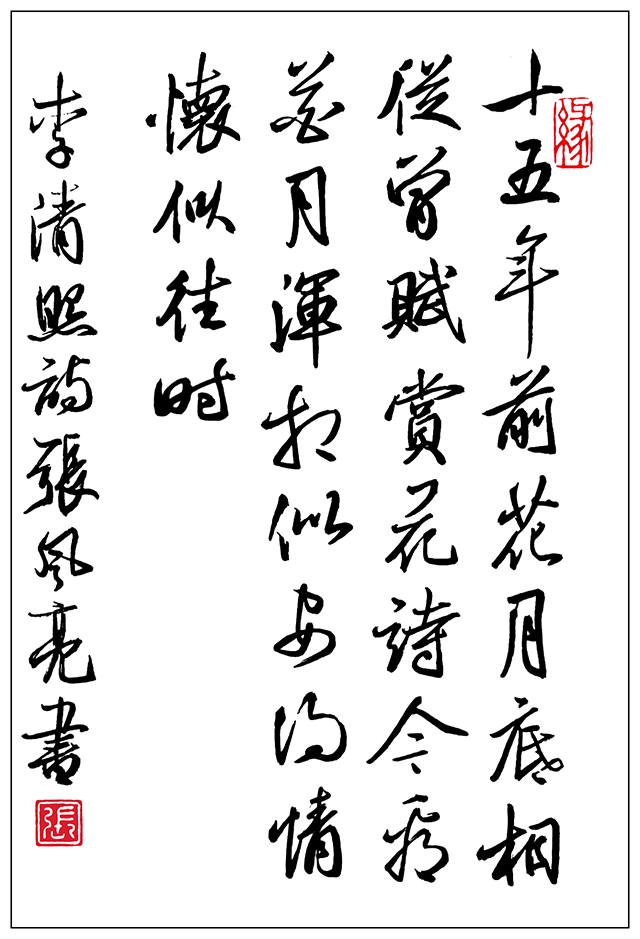 緣
十五年前花月底相
從曾賦賞花詩今看
花月渾相似安得情
懷似往时
李清照詩張风亮書
張